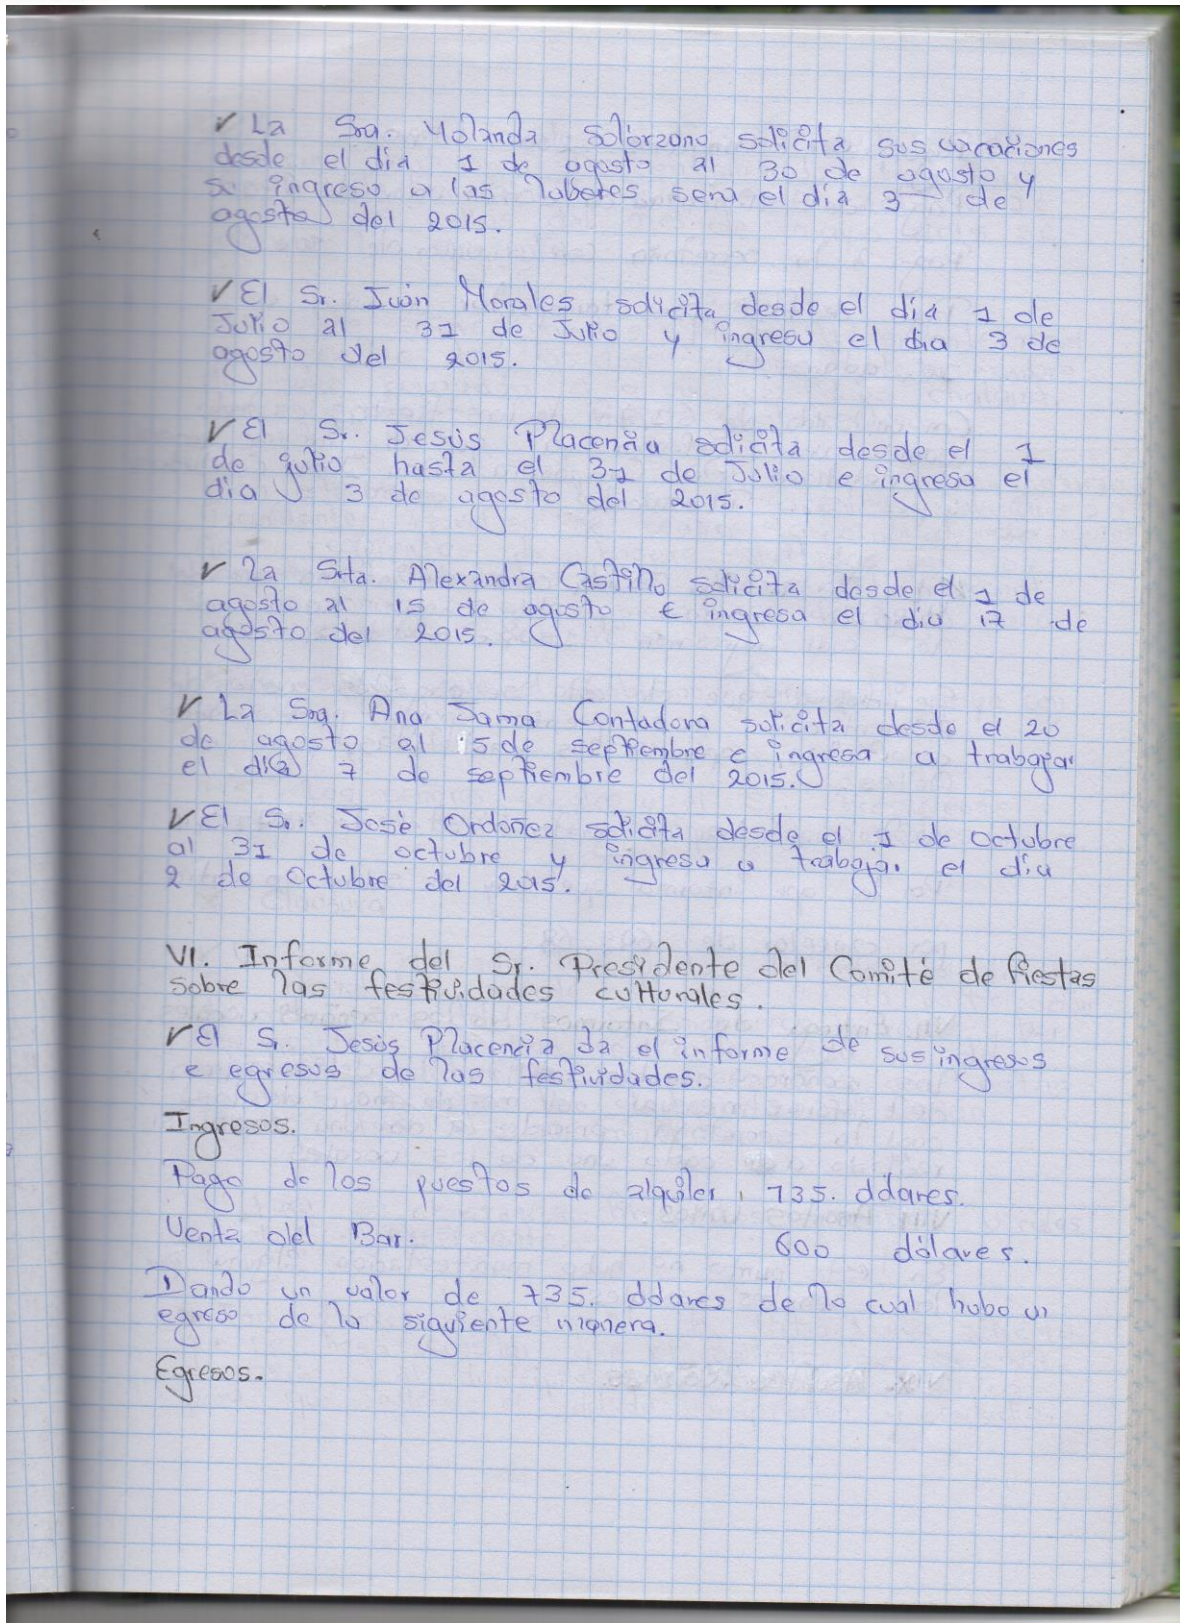 ✓ La Sra. Yolanda Solórzano solicita sus vacaciones
desde el día 1 de agosto al 30 de agosto y
su ingreso a las laberes sera el día 3 de
agosto del 2015.
✓ El Sr. Juón Morales solicita desde el día 1 de
Julio al 31 de Julio y ingresu el dia 3 de
agosto del 2015.
✓ El Sr. Jesús Placencia solicita desde el 1
de julio hasta el 31 de Julio e ingresa el
dia 3 de agosto del 2015.
✓ La Srta. Alexandra Castillo solicita desde el 1 de
agosto al 15 de agosto e ingresa el dia 17 de
agosto del 2015.
✓ La Sra. Ana Jama Contadora solicita desde el 20
de agosto al 5 de septiembre e ingresa a trabajar
el dia 7 de septiembre del 2015.
✓ El Sr. José Ordoñez solicita desde el 1 de octubre
al 31 de octubre y ingresa a trabajar el día
2 de Octubre del 2015.
VI. Informe del Sr. Presidente del Comité de fiestas
sobre las festividades culturales.
✓ El Sr. Jesús Placencia da el informe de sus ingresos
e egresos de las festividades.
Ingresos.
Pago de los puestos de alquiler, 735. dólares.
Venta del Bar. 600 dólares.
Dando un valor de 735. dólares de lo cual hubo un
egreso de la siguiente manera.
Egresos.